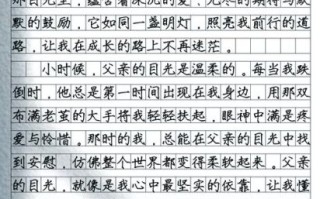 那目光里，蕴含着深沉的爱，无尽的期待与默
默的鼓励，它如同一盏明灯，照亮我前行的道
路，让我在成长的路上不再迷茫。
小时候，父亲的目光是温柔的。每当我跌
倒时，他总是第一时间出现在我身边，用那双
布满老茧的大手将我轻轻扶起，眼神中满是疼
爱与怜惜。那时的我，总能在父亲的目光中找
到安慰，仿佛整个世界都变得柔软起来。父亲
的目光，就像是我心中最坚实的依靠，让我懂